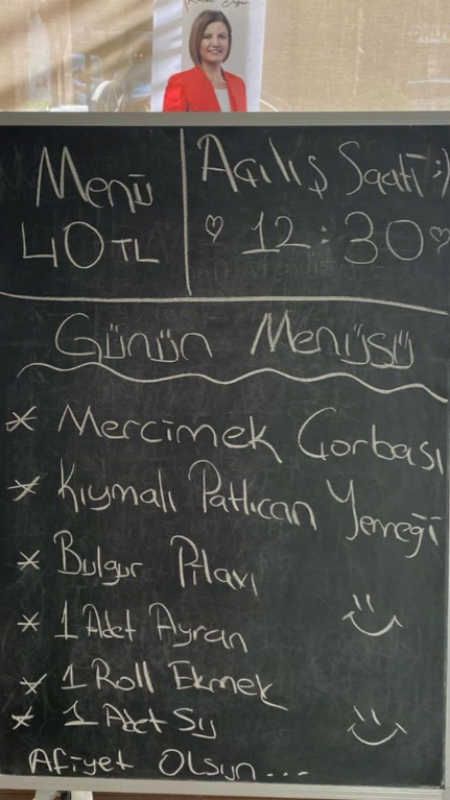 Menü
40 TL
Açılış Saati :)
♡ 12:30 ♡
Günün Menüsü
* Mercimek Çorbası
* Kıymalı Patlıcan Yemeği
* Bulgur Pilavı
* 1 Adet Ayran
* 1 Roll Ekmek
* 1 Adet Su
Afiyet Olsun...